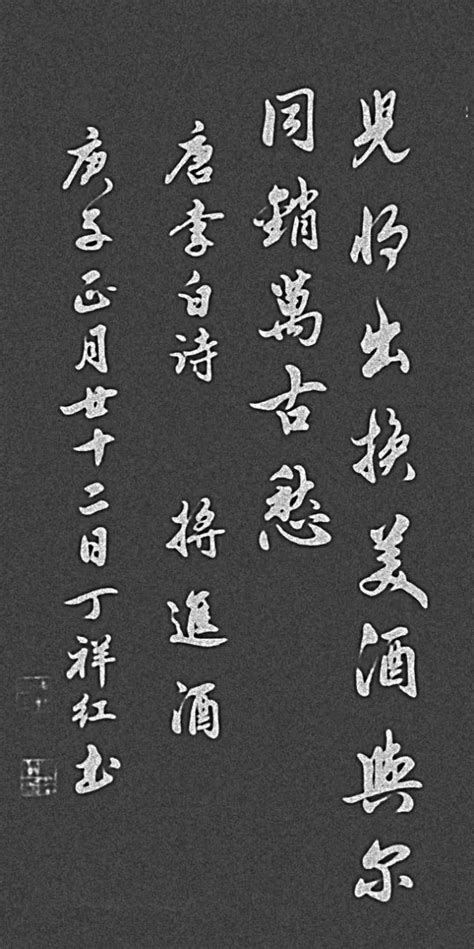 児将出换美酒與尔
同銷萬古愁
唐李白诗 將進酒
庚子正月廿十二日丁祥红书